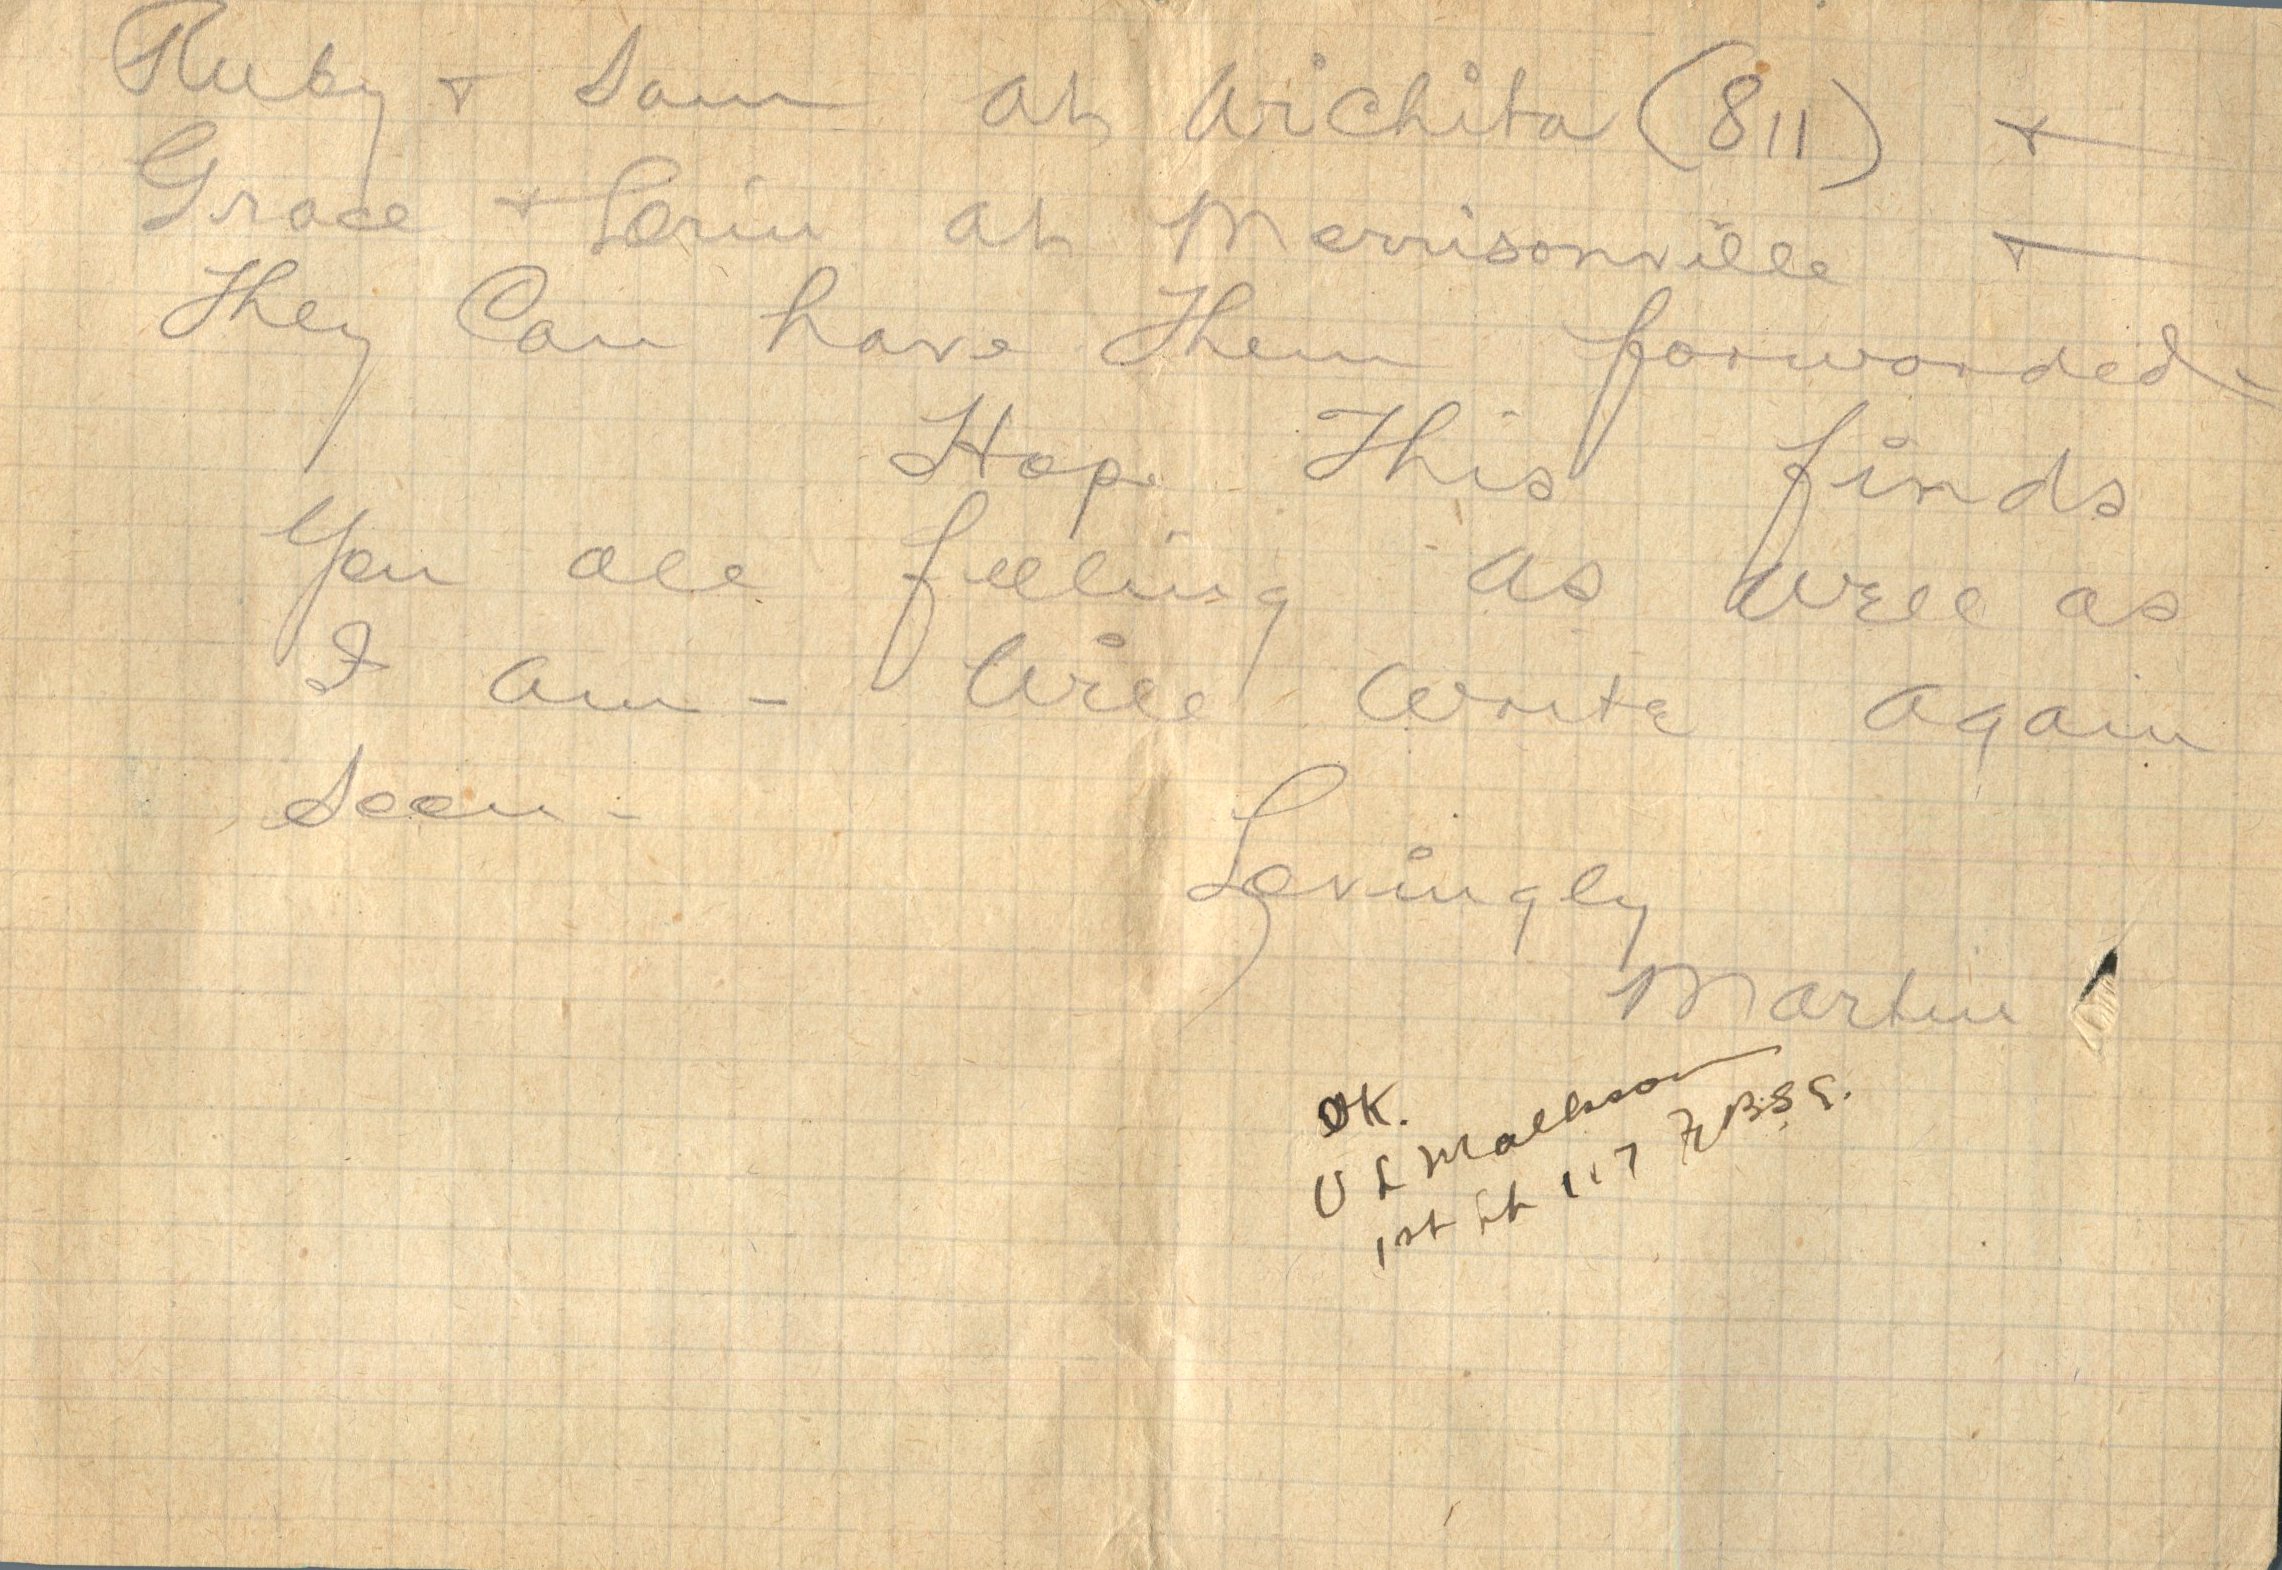 Ruby + Sam at Wichita (811) +
Grace + Lorin at Morrisonville +
They Can have Them forwarded-
Hope This finds
You all feeling as well as
I am - Will write again
Soon -
Lovingly
Martin
OK.
1st Lt 117 F.B.S.S.